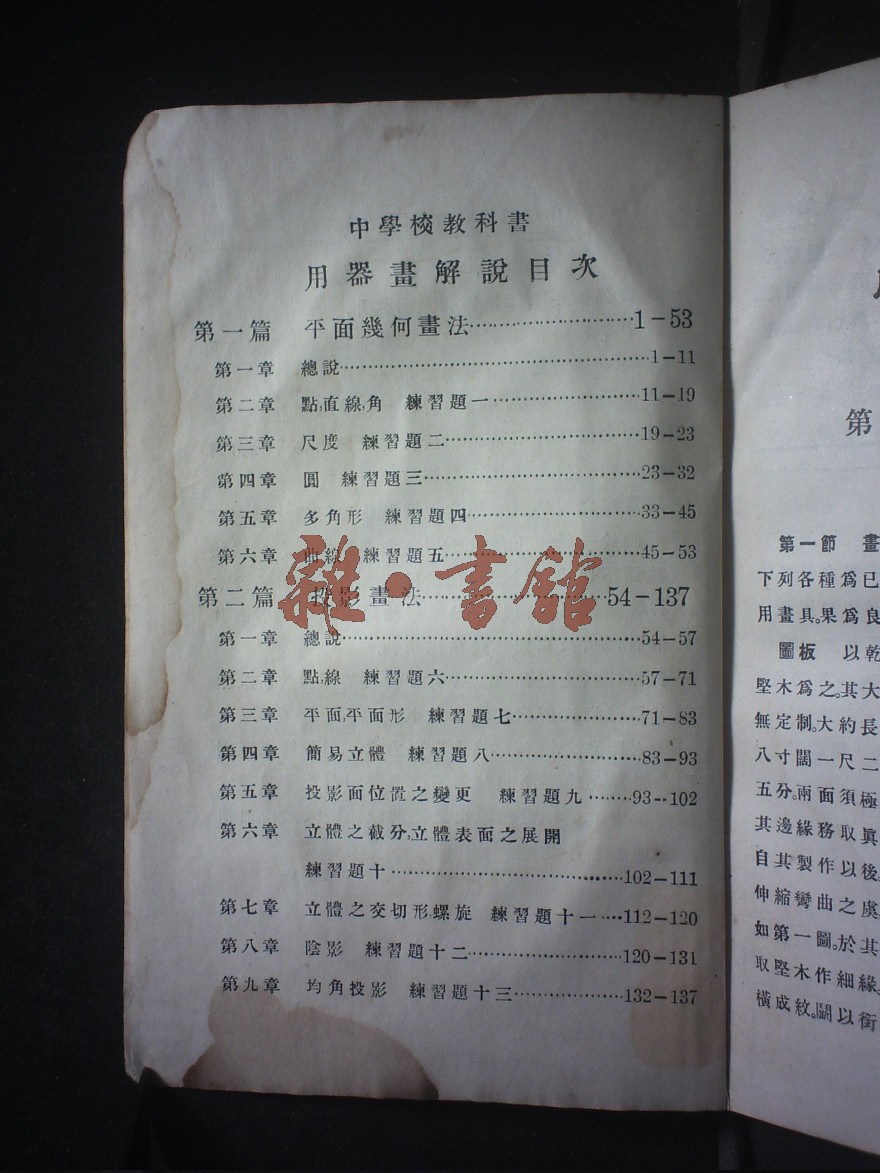 中學校教科書
用器畫解說目次
第一篇 平面幾何畫法 1-53
第一章 總說 1-11
第二章 點,直線,角 練習題一 11-19
第三章 尺度 練習題二 19-23
第四章 圓 練習題三 23-32
第五章 多角形 練習題四 33-45
第六章 曲線 練習題五 45-53
第二篇 投影畫法 54-137
第一章 總說 54-57
第二章 點,線 練習題六 57-71
第三章 平面,平面形 練習題七 71-83
第四章 簡易立體 練習題八 83-93
第五章 投影面位置之變更 練習題九 93-102
第六章 立體之截分,立體表面之展開
練習題十 102-111
第七章 立體之交切形,螺旋 練習題十一 112-120
第八章 陰影 練習題十二 120-131
第九章 均角投影 練習題十三 132-137
雜·書館
第
第一節 畫
下列各種爲已
用畫具。果爲良
圖板 以乾
堅木爲之。其大
無定制。大約長
八寸闊一尺二
五分。兩面須極
其邊緣務取眞
自其製作以後。
伸縮彎曲之虞。
如第一圖。於其
取堅木作細緣。
橫成紋。鬭以銜